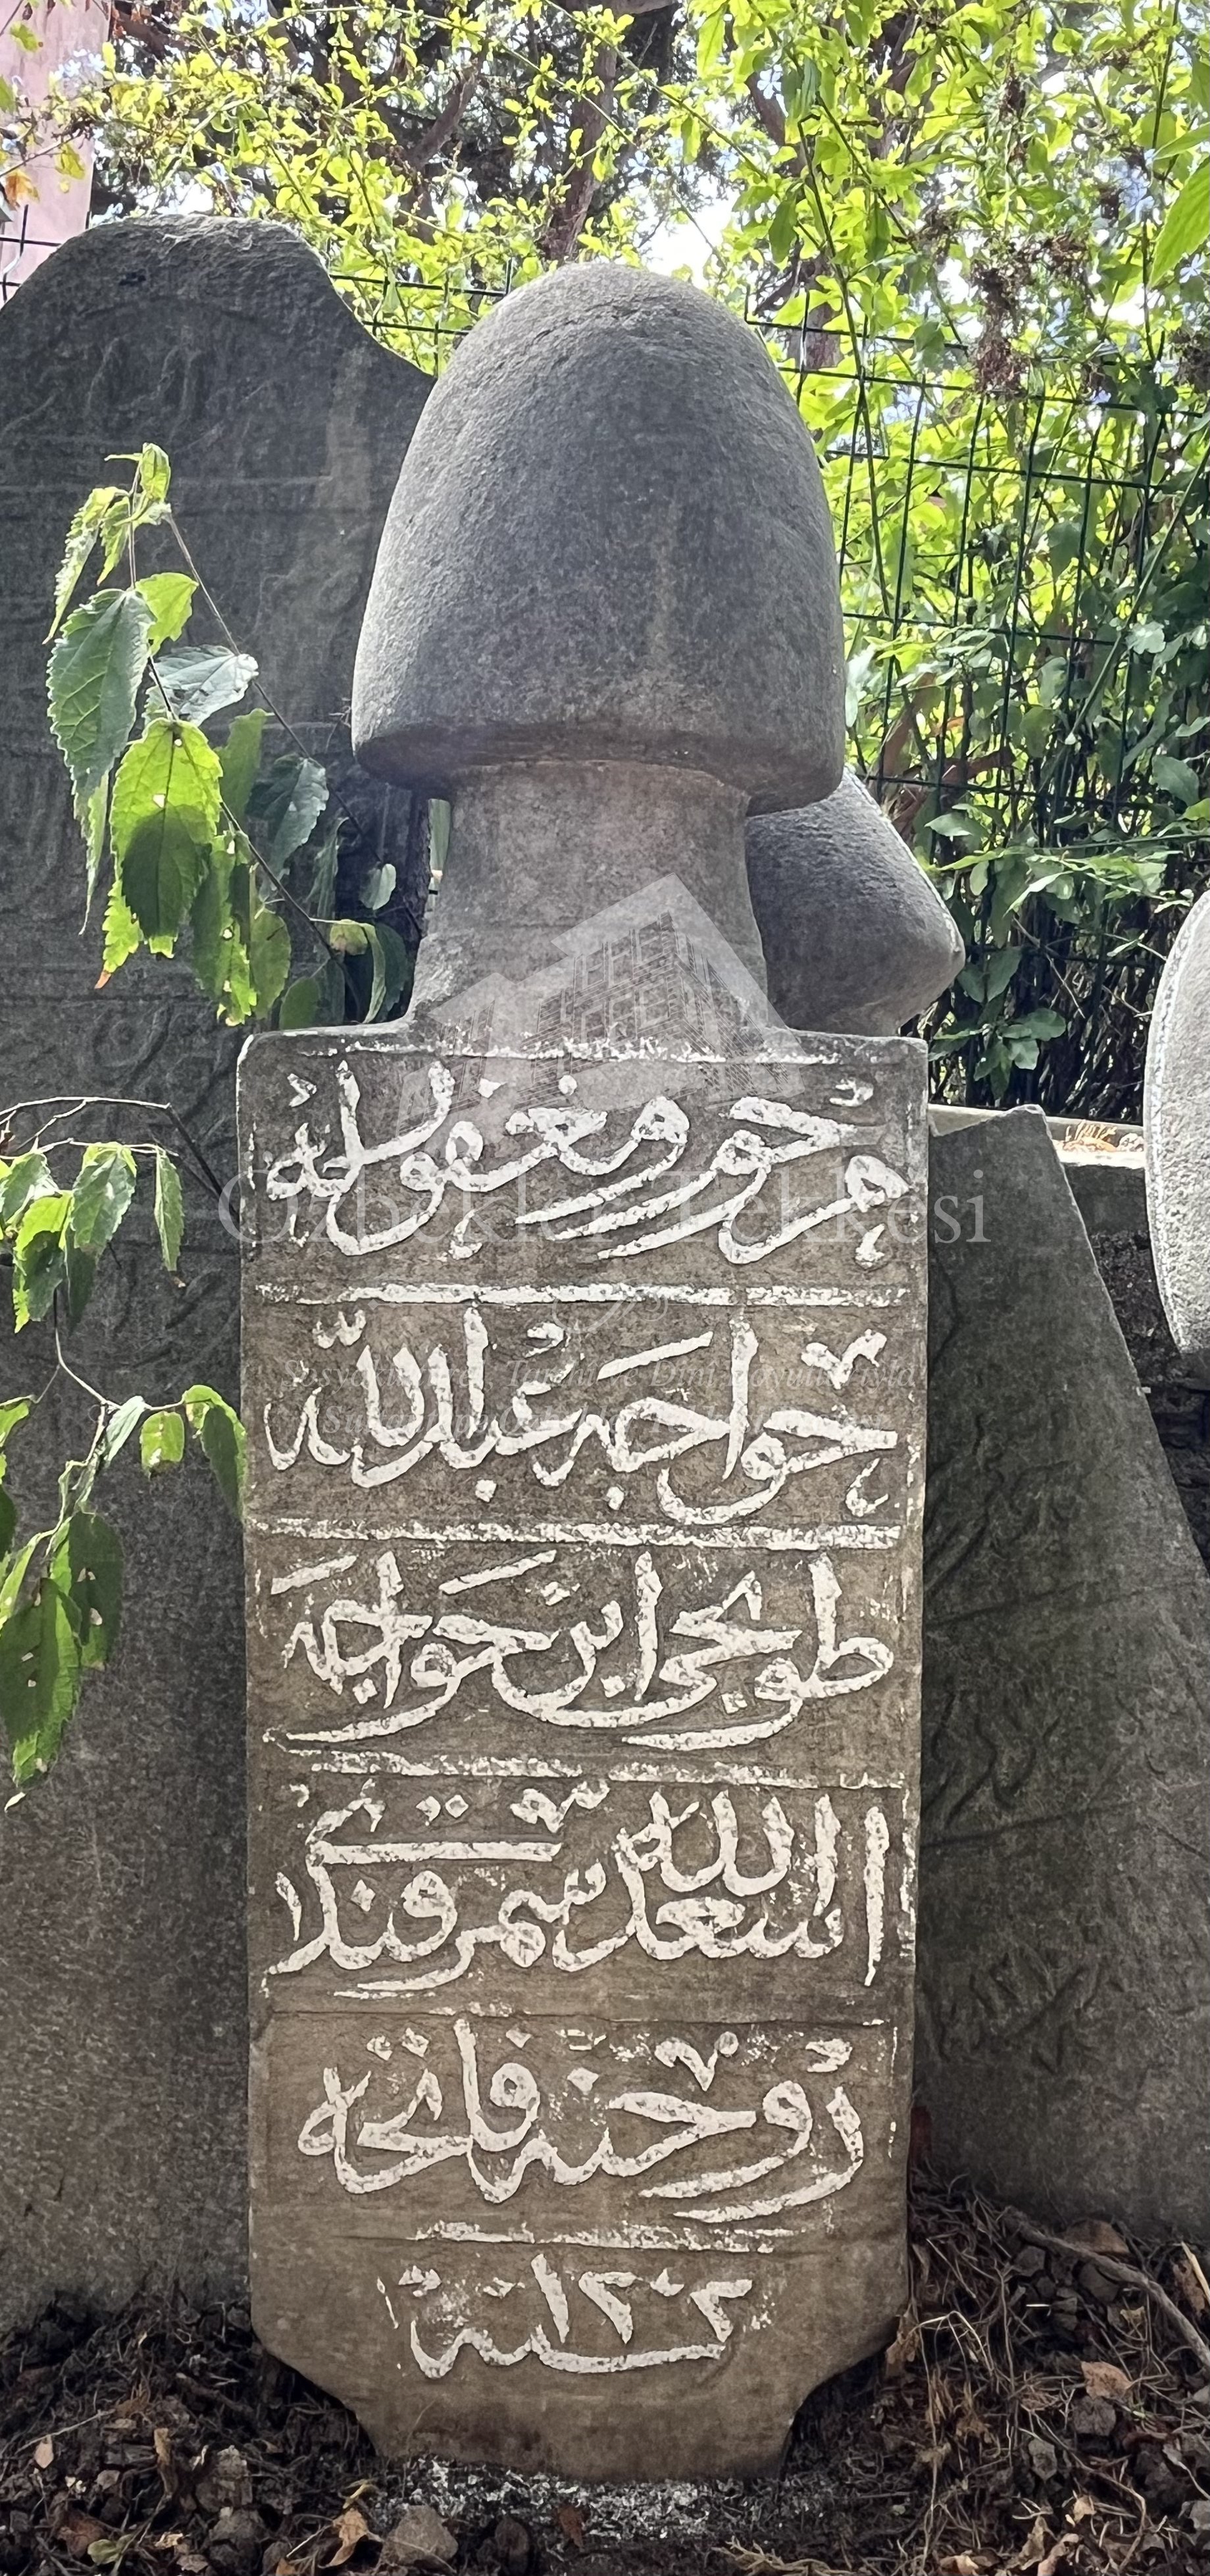 مرحوم و مغفور له
خواجه عبد الله
طوبجی ابن خواجه
اسعد الله سمرقندی
روحنه فاتحه
سنة ١٢٠٢
Özbekler Tekkesi